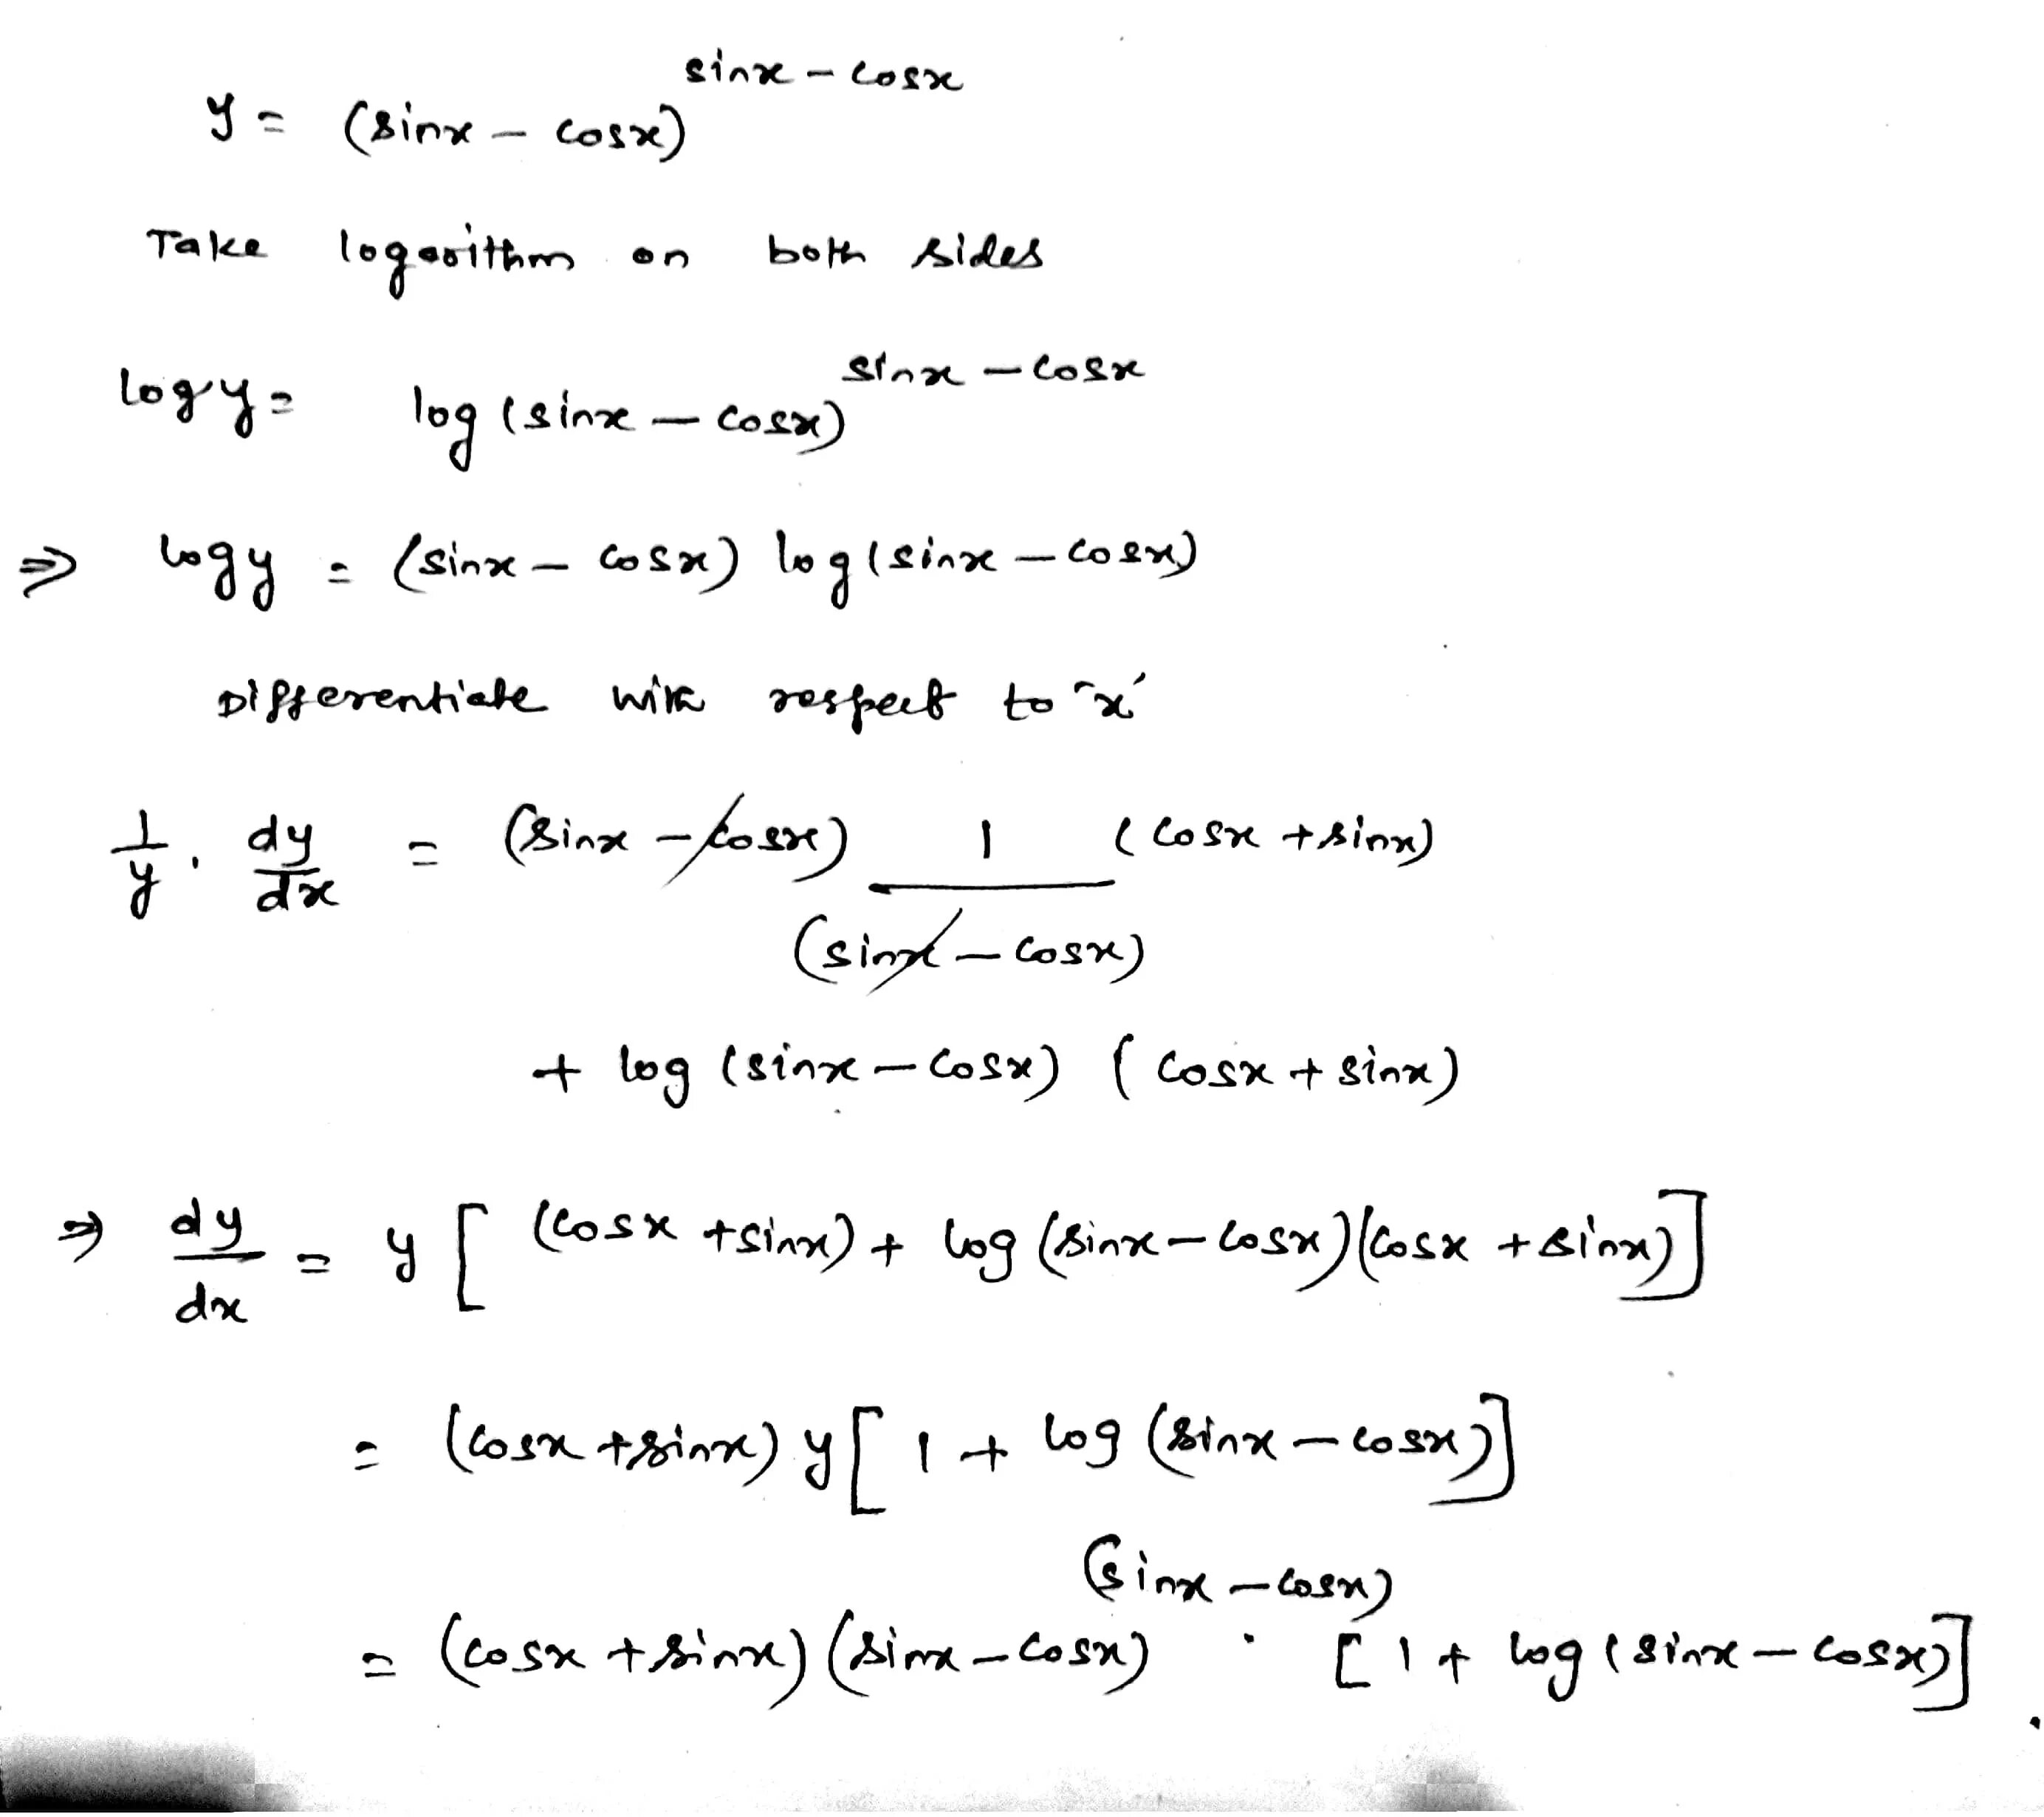 y = (sinx – cosx)^(sinx – cosx)
Take logarithm on both sides
log y = log (sinx – cosx)^(sinx – cosx)
⇒ log y = (sinx – cosx) log (sinx – cosx)
Differentiate with respect to 'x'
1/y . dy/dx = (sinx – cosx) 1/(sinx – cosx) (cosx + sinx)
+ log (sinx – cosx) (cosx + sinx)
⇒ dy/dx = y [ (cosx + sinx) + log (sinx – cosx) (cosx + sinx) ]
= (cosx + sinx) y [ 1 + log (sinx – cosx) ]
= (cosx + sinx) (sinx – cosx)^(sinx – cosx) . [ 1 + log (sinx – cosx) ] .